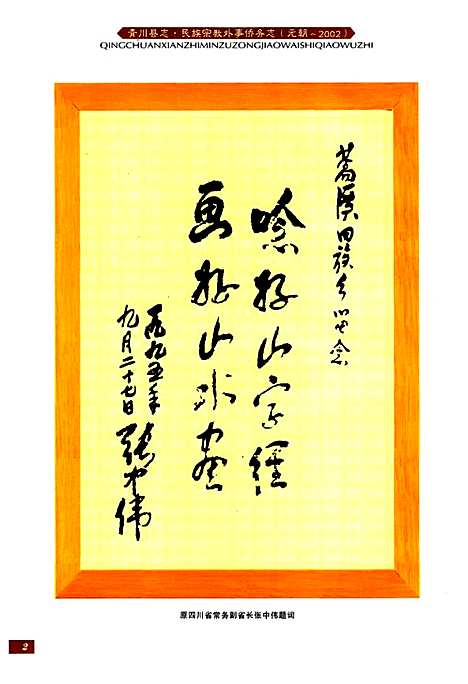 青川县志·民族宗教外事侨务志（元朝～2002）
QINGCHUANXIANZHIMINZUZONGJIAOWAISHIQIAOWUZHI
蒿溪回族乡留念
唸好山字经
画好山水画
一九九五年
九月二十七日
张中伟
原四川省常务副省长张中伟题词
2